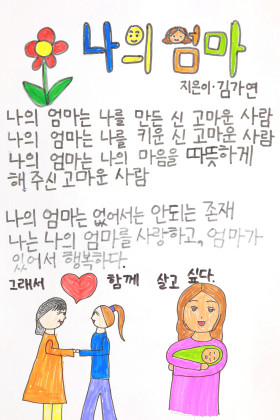 나의 엄마
지은이·김가연
나의 엄마는 나를 만든 신 고마운 사람
나의 엄마는 나를 키운 신 고마운 사람
나의 엄마는 나의 마음을 따뜻하게
해 주신 고마운 사람
나의 엄마는 없어서는 안되는 존재
나는 나의 엄마를 사랑하고, 엄마가
있어서 행복하다.
그래서 함께 살고 싶다.